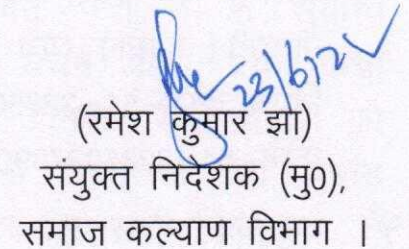 (रमेश कुमार झा)
संयुक्त निदेशक (मु0),
समाज कल्याण विभाग ।